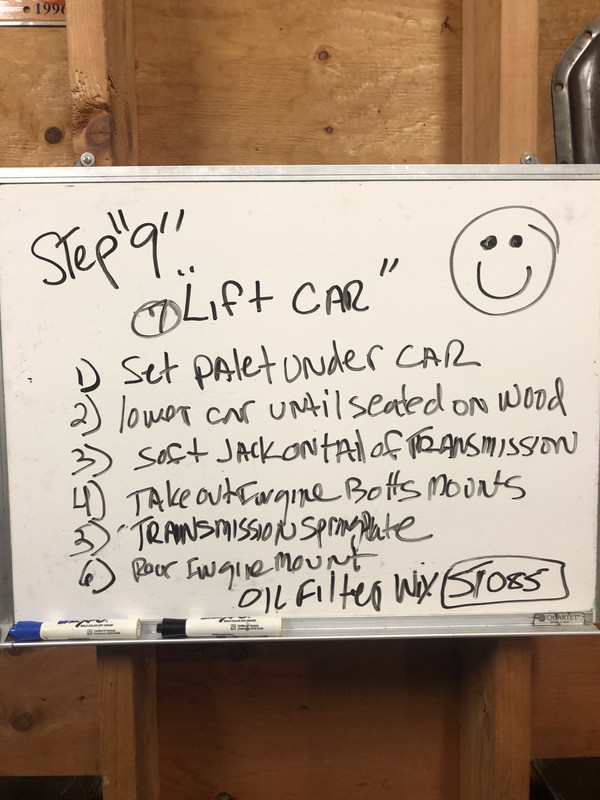 • 1996
Step "9"
"Lift CAR"
1) Set PAlet under CAR
2) lower car until seated on wood
3) Soft JACK on tAil of TRANSMISSION
4) TAKE out Engine Bolts Mounts
5) TRANSMISSION Spring Plate
6) Rear Engine Mount
OIL Filter Wix 51085
QUARTET